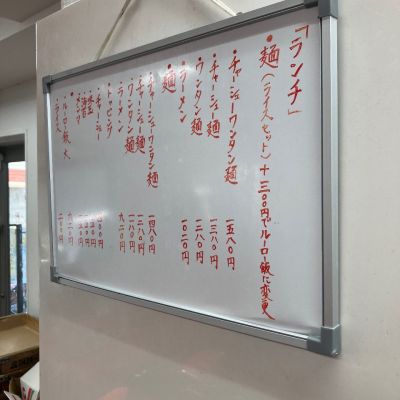 「ランチ」
●麺（ライスセット）＋三〇〇円でルーロー飯に変更
・チャーシューワンタン麺 一五八〇円
・チャーシュー麺 一三八〇円
・ワンタン麺 一二八〇円
・ラーメン 一〇二〇円
●麺
・チャーシューワンタン麺 一四八〇円
・チャーシュー麺 一二八〇円
・ワンタン麺 一一八〇円
・ラーメン 九二〇円
・トッピング
・チャーシュー
・ルーロー飯 大
・ライス